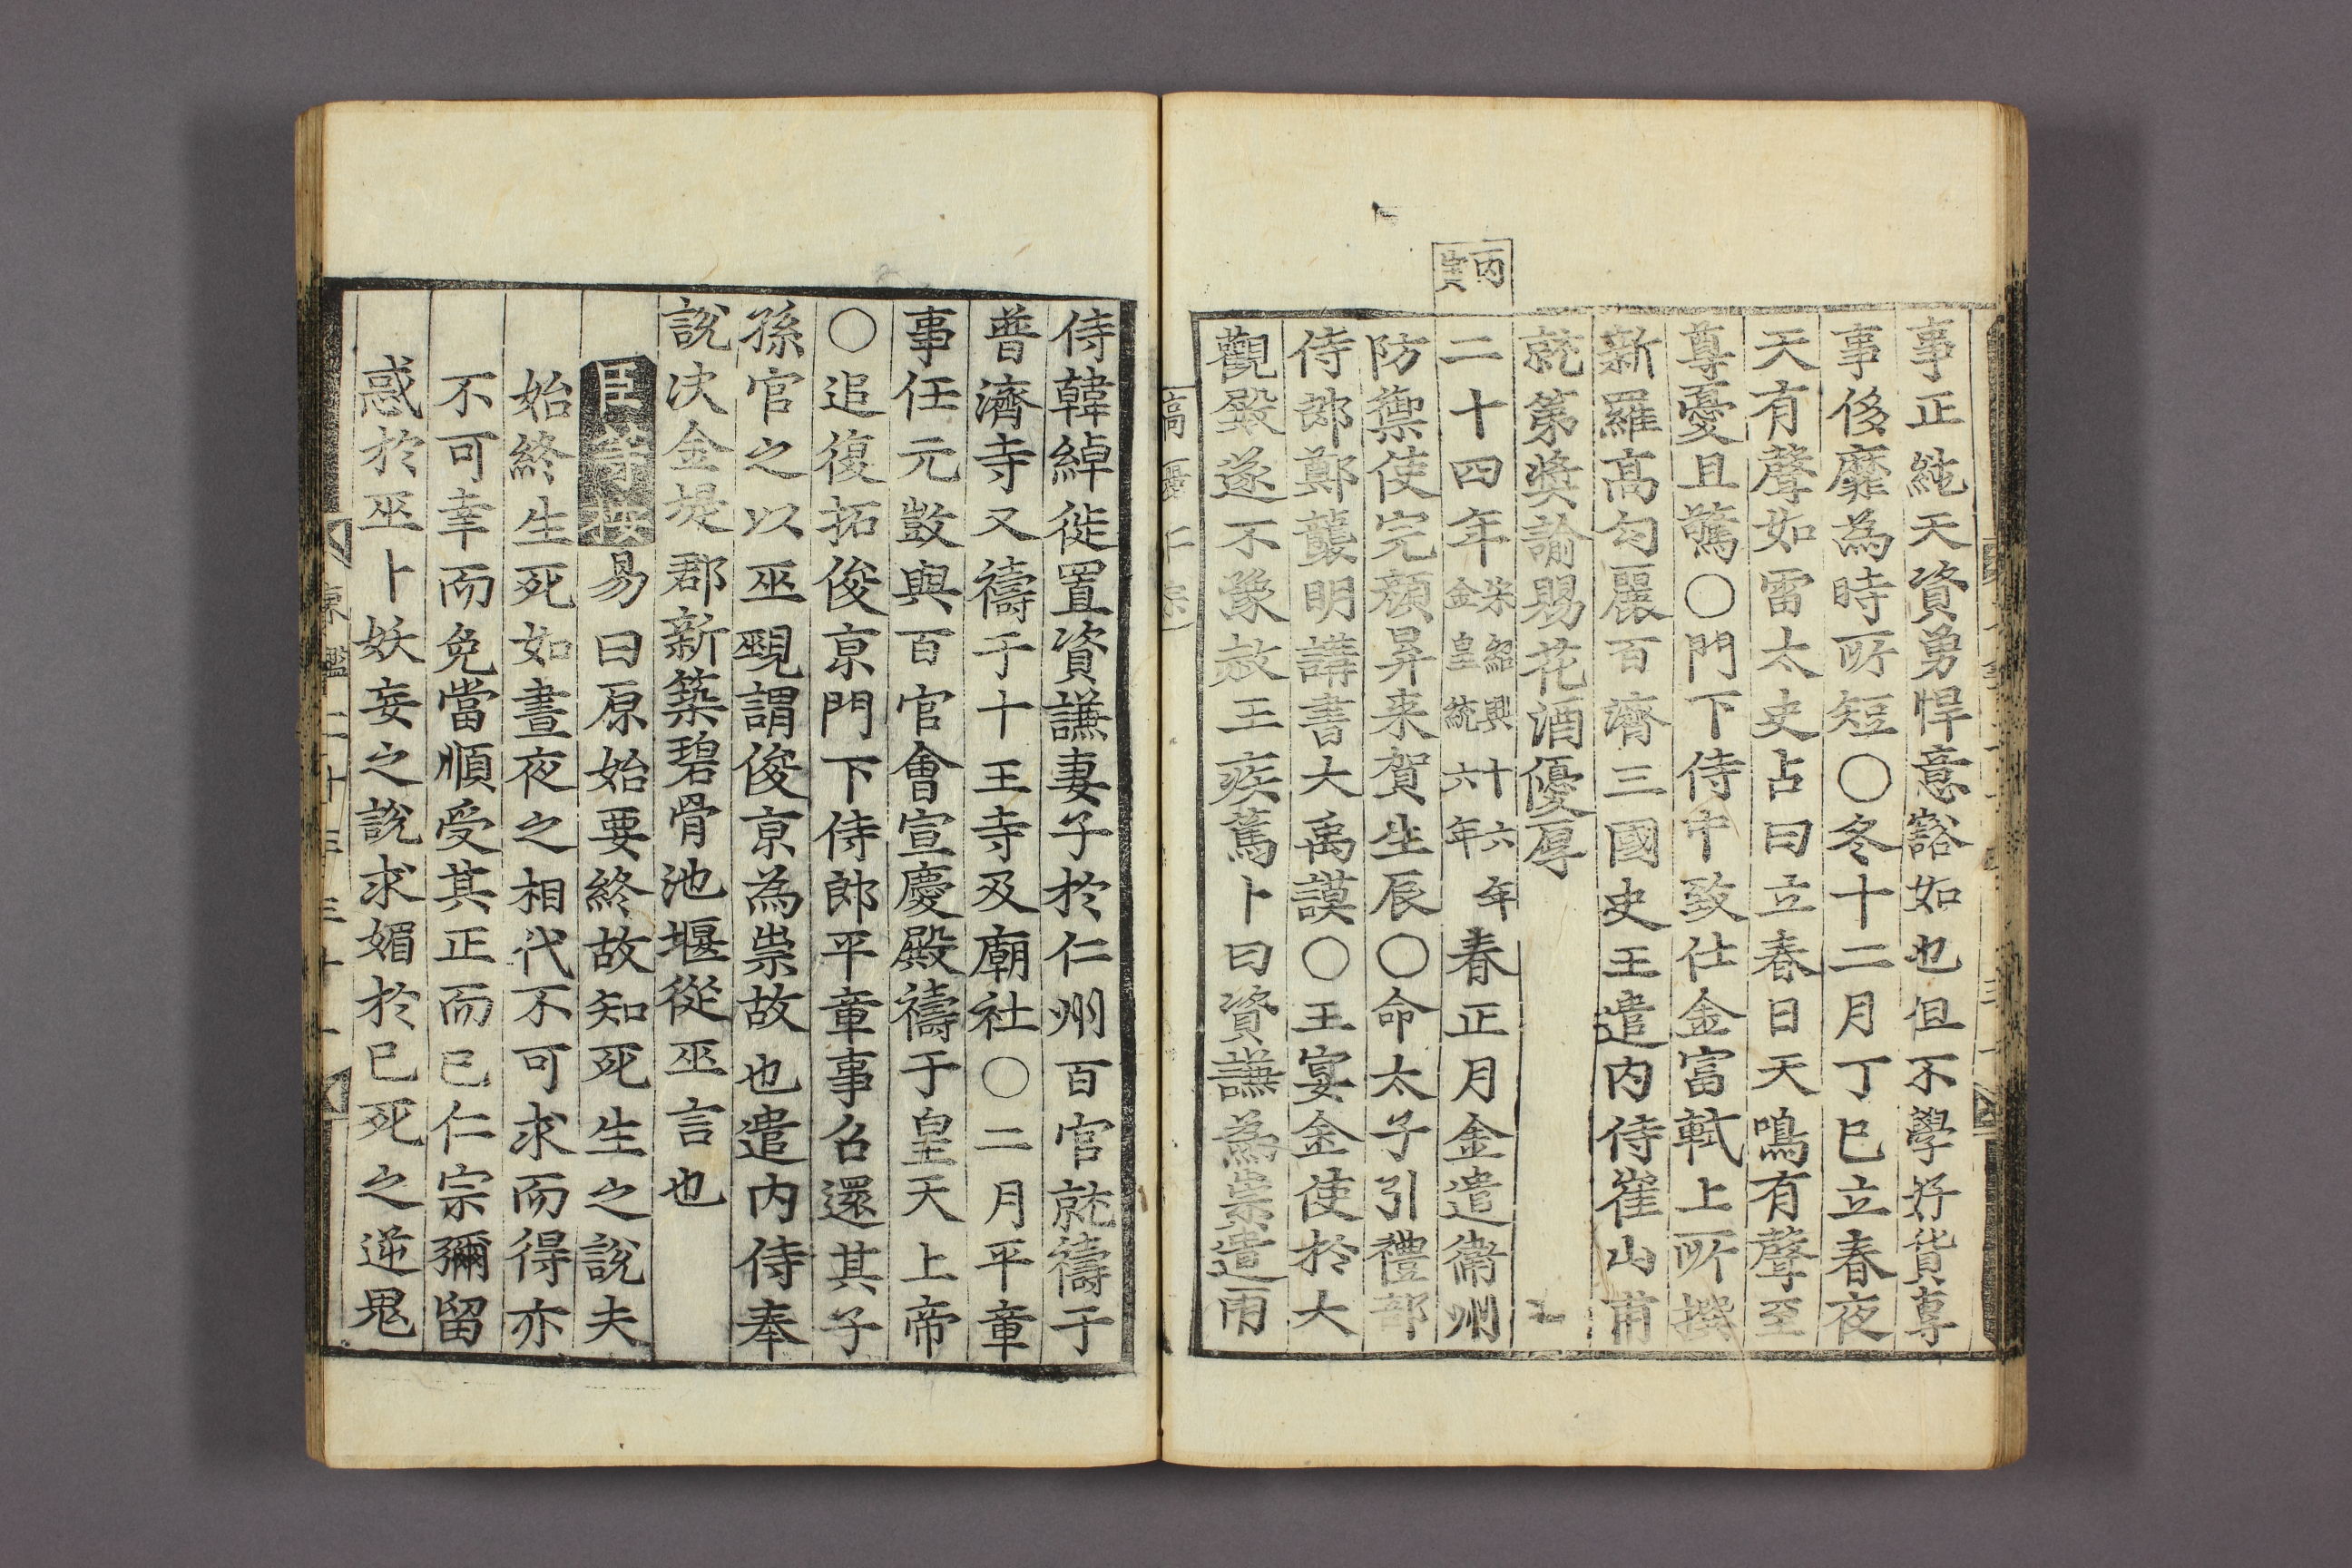 事正純天資勇悍意豁如也但不學好貨專
事侈靡為時所短○冬十二月丁巳立春夜
天有聲如雷太史占曰立春日天鳴有聲至
尊憂且驚○門下侍中致仕金富軾上所撰
新羅高句麗百濟三國史王遣内侍崔山甫
就第奬諭賜花酒優厚
丙寅
二十四年宋紹興十六年金皇統六年春正月金遣衞州
防禦使完顔昇来賀生辰○命太子引禮部
侍郎鄭襲明講書大禹謨○王宴金使於大
觀殿遂不豫赦王疾篤卜曰資謙為祟遣内
高麗仁宗
侍韓綽徙置資謙妻子於仁州百官就禱于
普濟寺又禱于十王寺及廟社○二月平章
事任元敳與百官會宣慶殿禱于皇天上帝
○追復拓俊京門下侍郎平章事召還其子
孫官之以巫覡謂俊京為祟故也遣内侍奉
說决金堤郡新築碧骨池堰從巫言也
臣等按易曰原始要終故知死生之說夫
始終生死如晝夜之相代不可求而得亦
不可幸而免當順受其正而已仁宗彌留
惑於巫卜妖妄之說求媚於已死之逆鬼